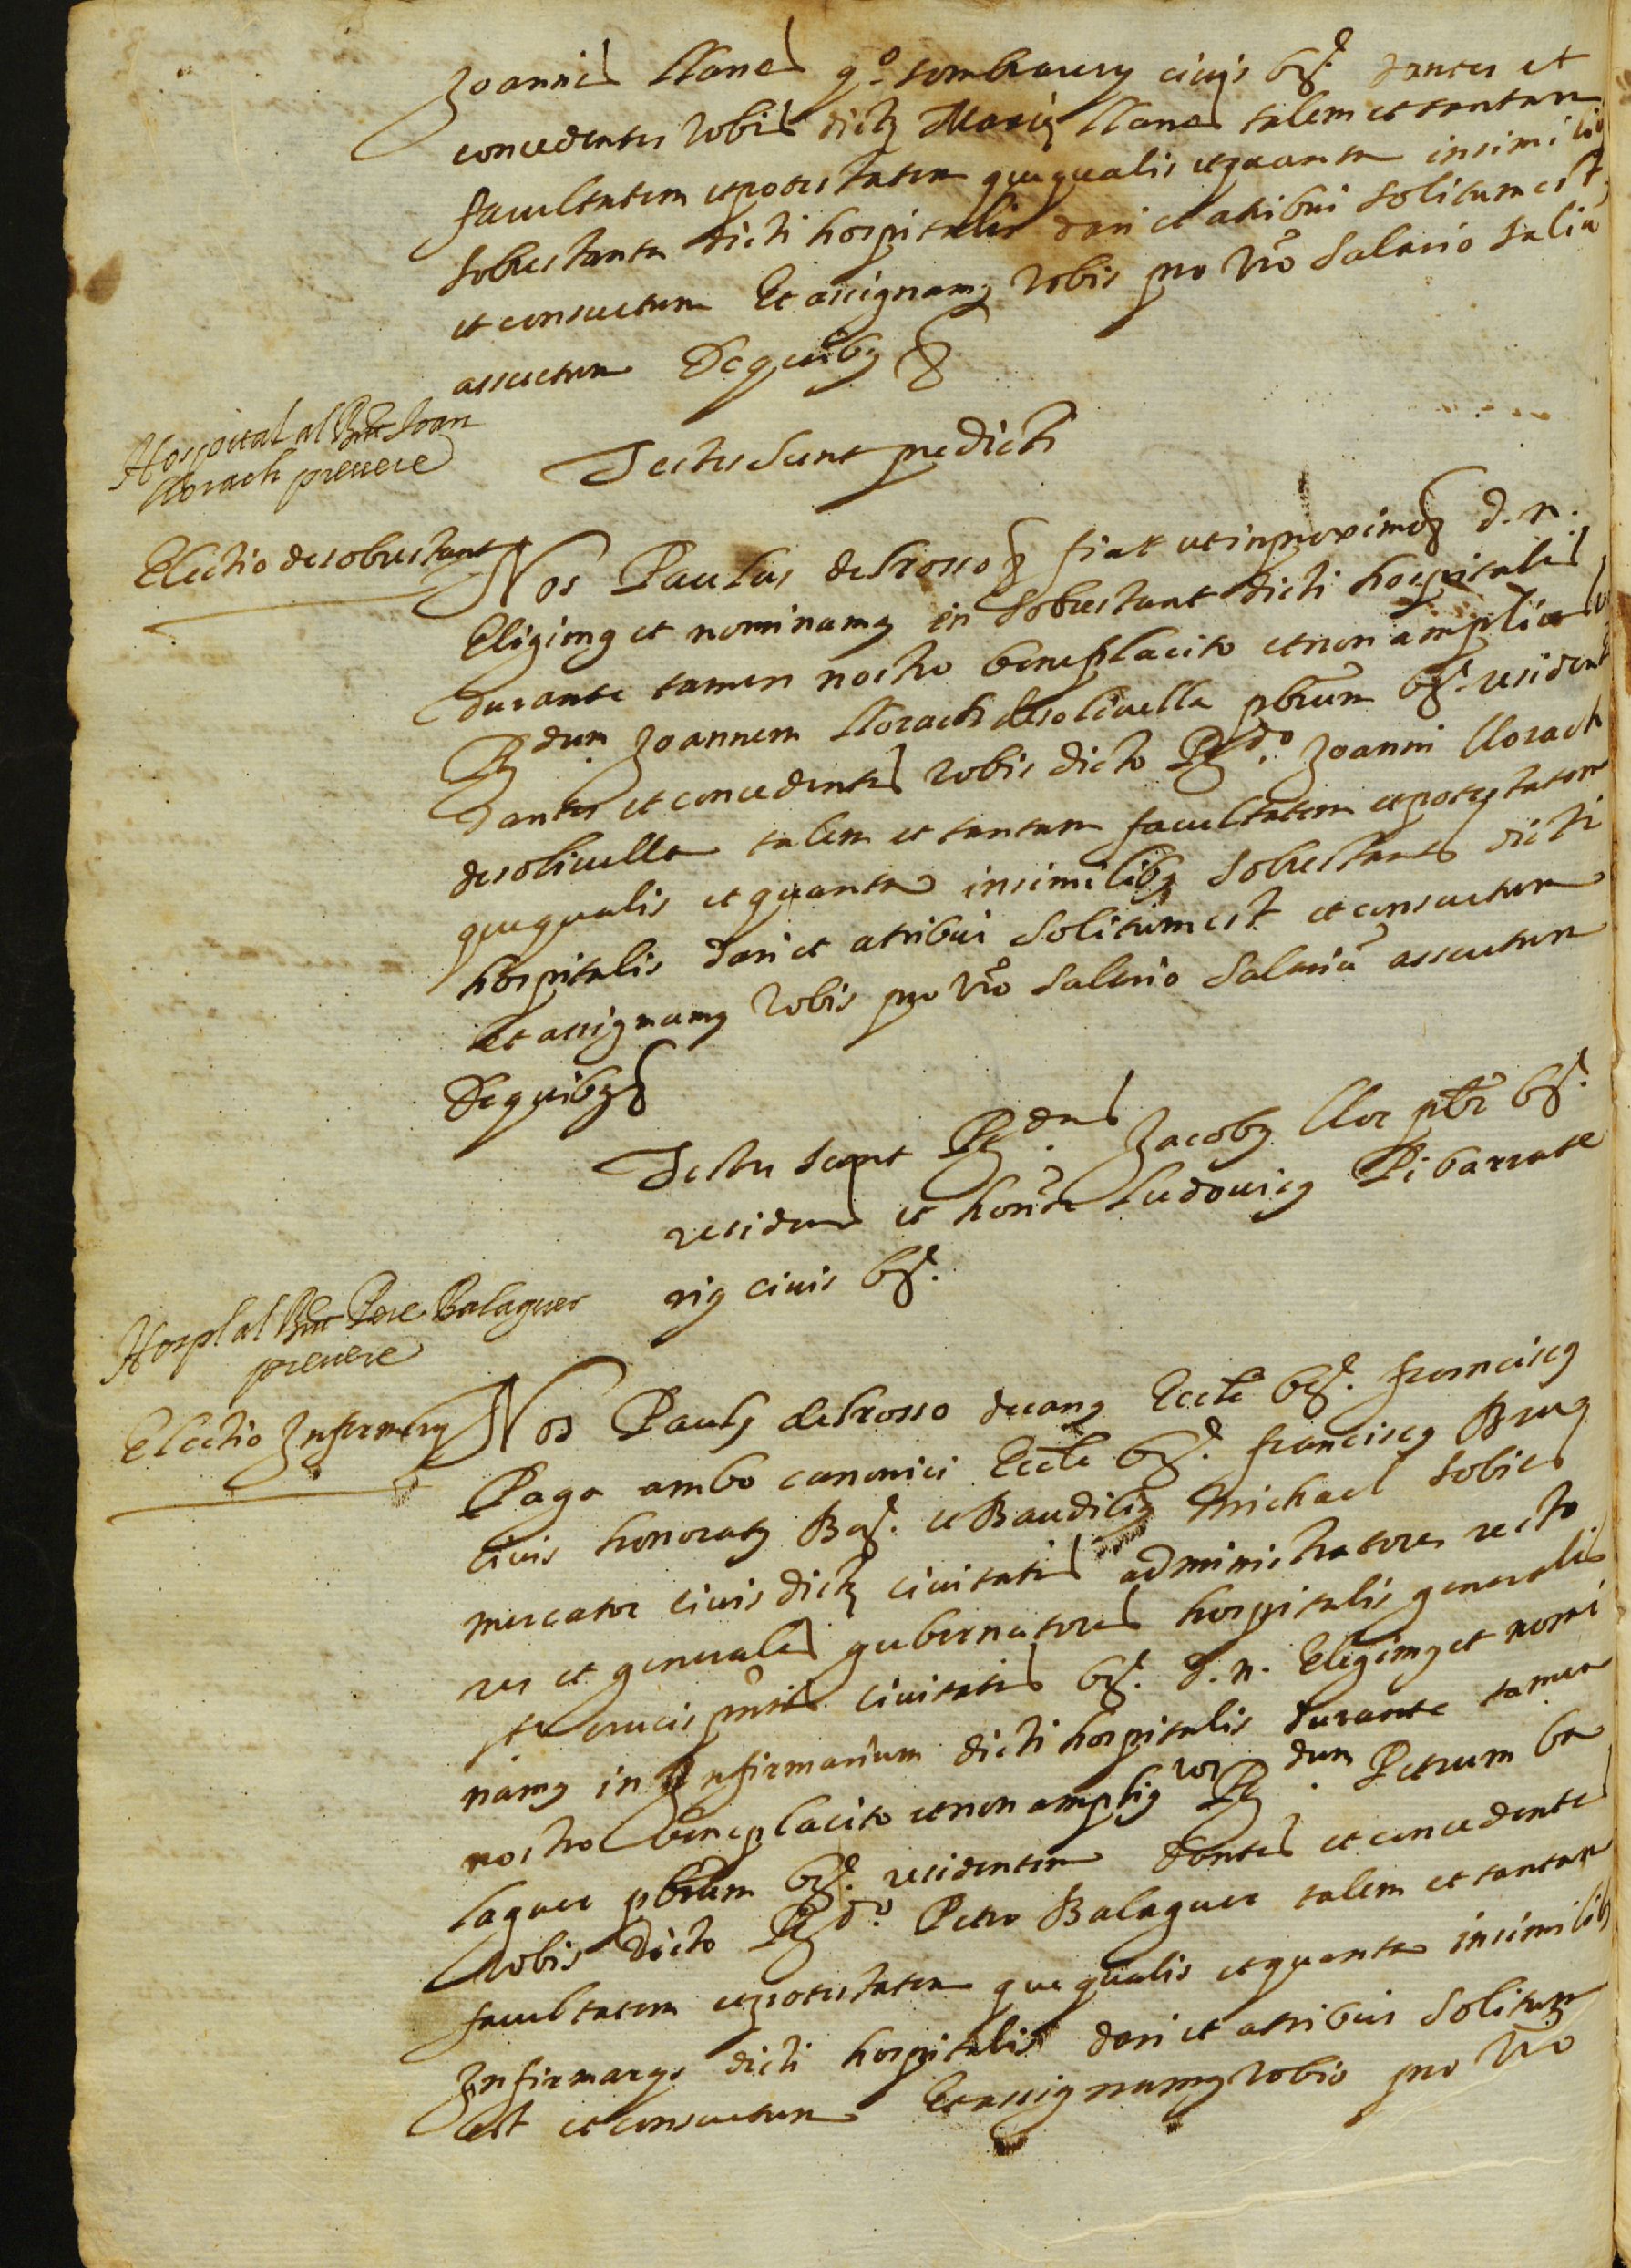 Joannis Llanes q.º sombrarery civis bḡ. dantes et
concedentes vobis dictę Marię Llanes talem et tantam
facultatem et potestatem que qualis et quanta in simili
sobrestanta dicti hospitalis dari et atribui solitum est
et consuetum Et assignamꝰ vobis pro vr̃o salario saliũ
assuetum De quibꝰ &
Testes sunt predicti
Hospital al R.nt Joan
Llorach prevere
Electio de sobrestant
Nos Paulus del Rosso & fiat ut in proxime & d. n.
Eligimꝰ et nominamꝰ in sobrestant dicti hospitalis
durante tamen nostro beneplacito et non amplius v
R.dum Joannem Llorach de solivella pbr̃um bḡ. resident
dantes et concedentes vobis dicto R.do Joanni Llorach
de solivella talem et tantam facultatem et potestatem
que qualis et quanta in similibꝰ sobrestants dicti
hospitalis dari et atribui solitum est et consuetum
Et assignamꝰ vobis pro vr̃o salario salariũ assuetum
De quibꝰ &
Testes sunt R.dus Jacobꝰ Llor pbr̃ bḡ.
residens et honor̃. Ludovicꝰ Ribarrate
rig civis bḡ.
Hospl al R.nt Pere Balaguer
prevere
Electio Infirmery
Nos Paulꝰ del Rosso decanꝰ Eccle bḡ. franciscꝰ
Paga ambo canonici Eccle bḡ. franciscꝰ Bruꝰ
civis honoratꝰ Bḡ. et Baudiliꝰ Michael Sobies
mercator civis dictę civitatis administratores recto
res et generales gubernatores hospitalis generalis
ste crucis pñtis civitatis bḡ. d. n. Eligimꝰ et nomi
namꝰ in Infirmarium dicti hospitalis durante tamen
nostro beneplacito et non ampliꝰ vos R.dum Petrum ba
laguer pbr̃um bḡ. residentem dantes et concedentes
vobis dicto R.do Petro Balaguer talem et tantam
facultatem et potestatem que qualis et quanta in similibꝰ
Infirmarys dicti hospitalis dari et atribui solitum
est et consuetum Et assignamꝰ vobis pro vr̃o